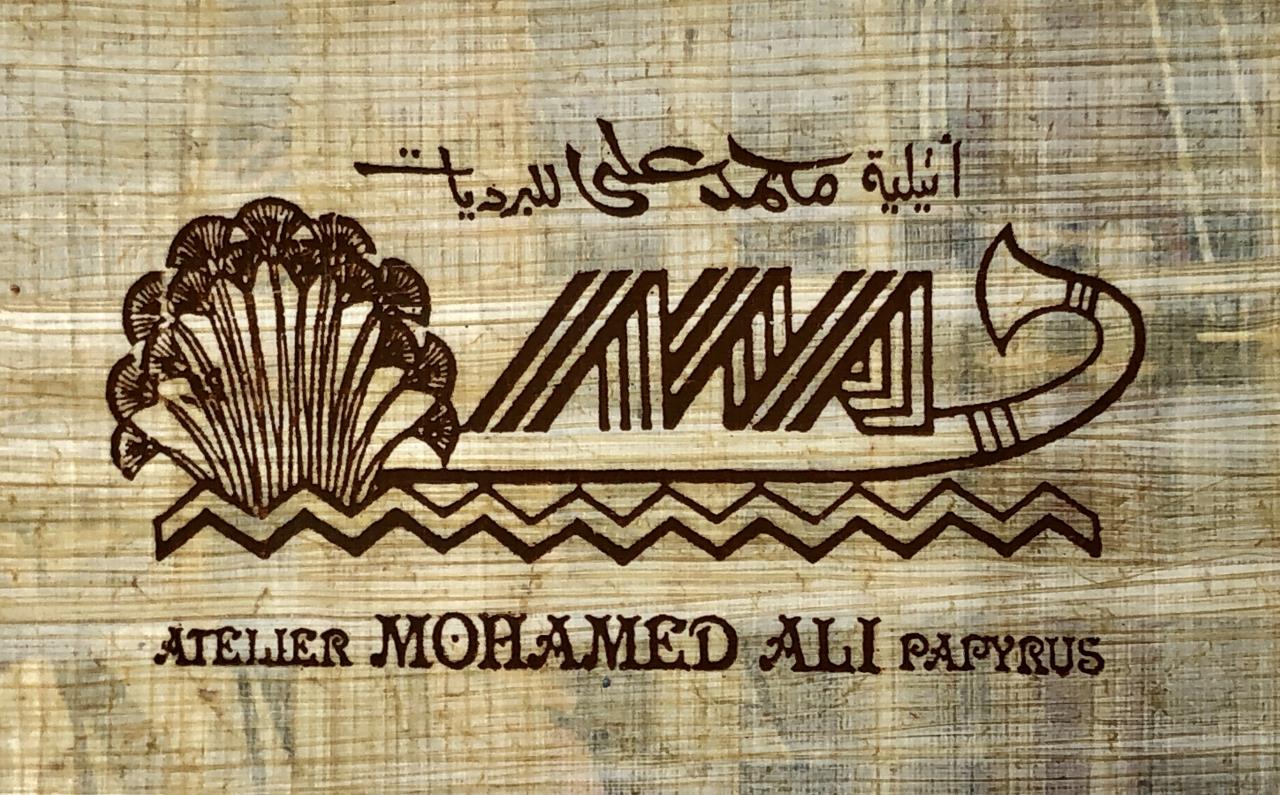 أتيلية محمد على للبرديات
ATELIER MOHAMED ALI PAPYRUS